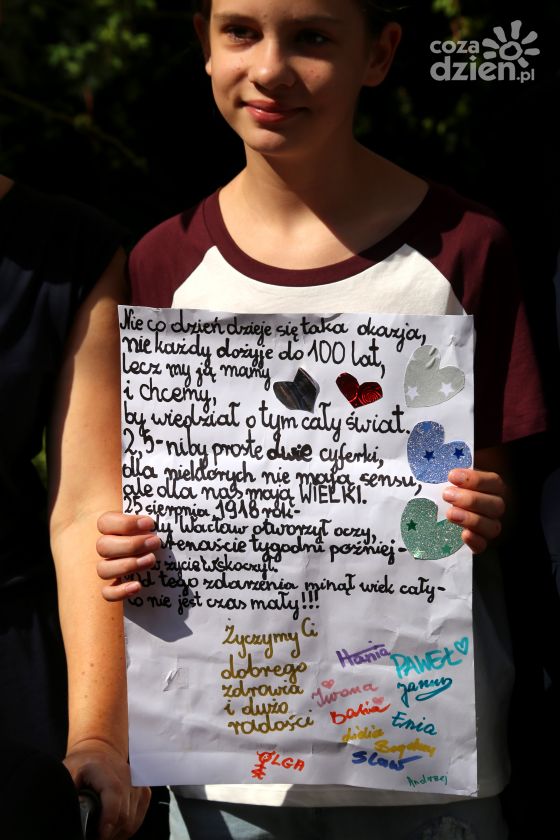 coza
dzien.pl
Nie co dzień dzieje się taka okazja,
nie każdy dożyje do 100 lat,
lecz my ją mamy
i chcemy,
by wiedział o tym cały świat.
2,5-niby proste dwie cyferki,
dla niektórych nie mają sensu,
ale dla nas mają WIELKI.
25 sierpnia 1918 roku-
Wacław otworzył oczy,
tygodni później-
w życie wskoczył.
Od tego zdarzenia minął wiek cały-
to nie jest czas mały!!!
Życzymy Ci
dobrego
zdrowia
i dużo
radości
Hania
PAWEŁ
Janusz
Iwona
Basia
Lidia
Bogdan
Sław
OLGA
Andrzej